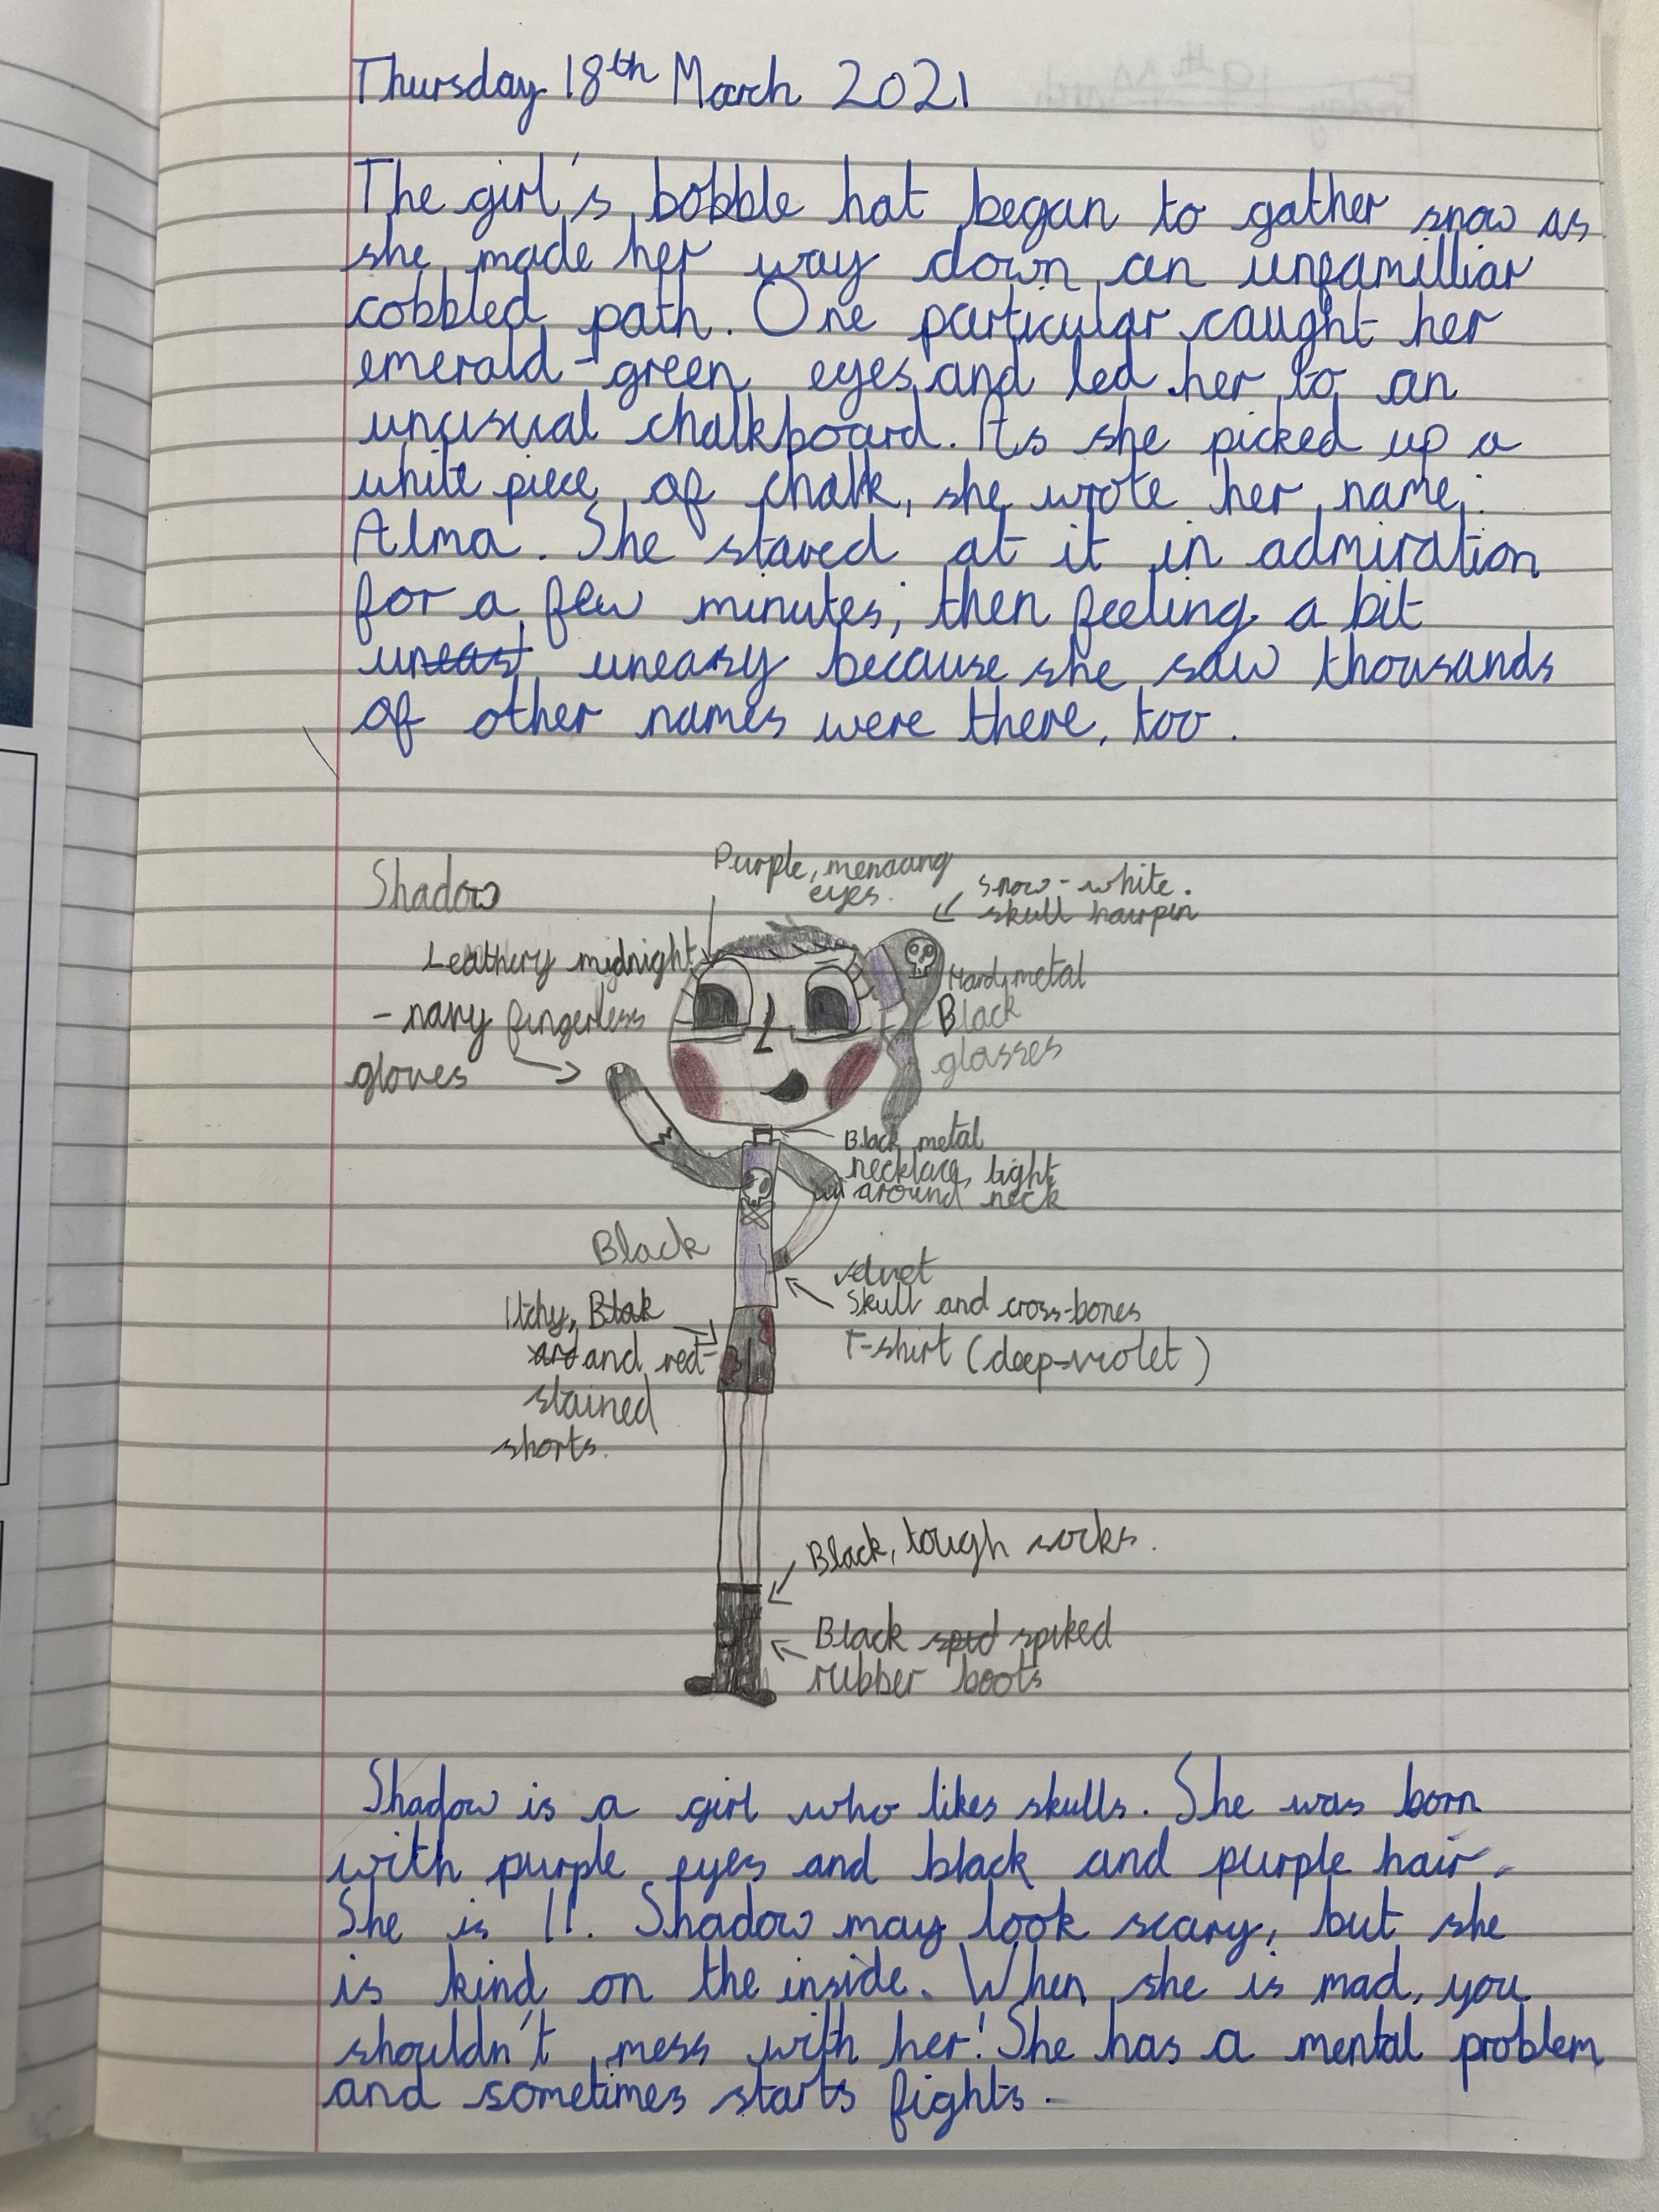 Thursday 18th March 2021
The girl's bobble hat began to gather snow as
she made her way down an unfamilliar
cobbled path. One particular caught her
emerald-green eyes and led her to an
unusual chalkboard. As she picked up a
white piece of chalk, she wrote her name:
Alma. She stared at it in admiration
for a few minutes; then feeling a bit
uneast uneasy because she saw thousands
of other names were there, too.
Shadow
Purple, menacing
eyes.
snow-white.
skull hairpin
Leathery midnight
-navy fingerless
gloves
Hard, metal
Black
glasses
Black metal
necklace, tight
around neck
Black
Itchy, Blak
and and red-
stained
shorts.
velvet
Skull and cross-bones
T-shirt (deep-violet)
Black, tough socks.
Black spid spiked
rubber boots
Shadow is a girl who likes skulls. She was born
with purple eyes and black and purple hair.
She is 11. Shadow may look scary, but she
is kind on the inside. When she is mad, you
shouldn't mess with her! She has a mental problem
and sometimes starts fights.